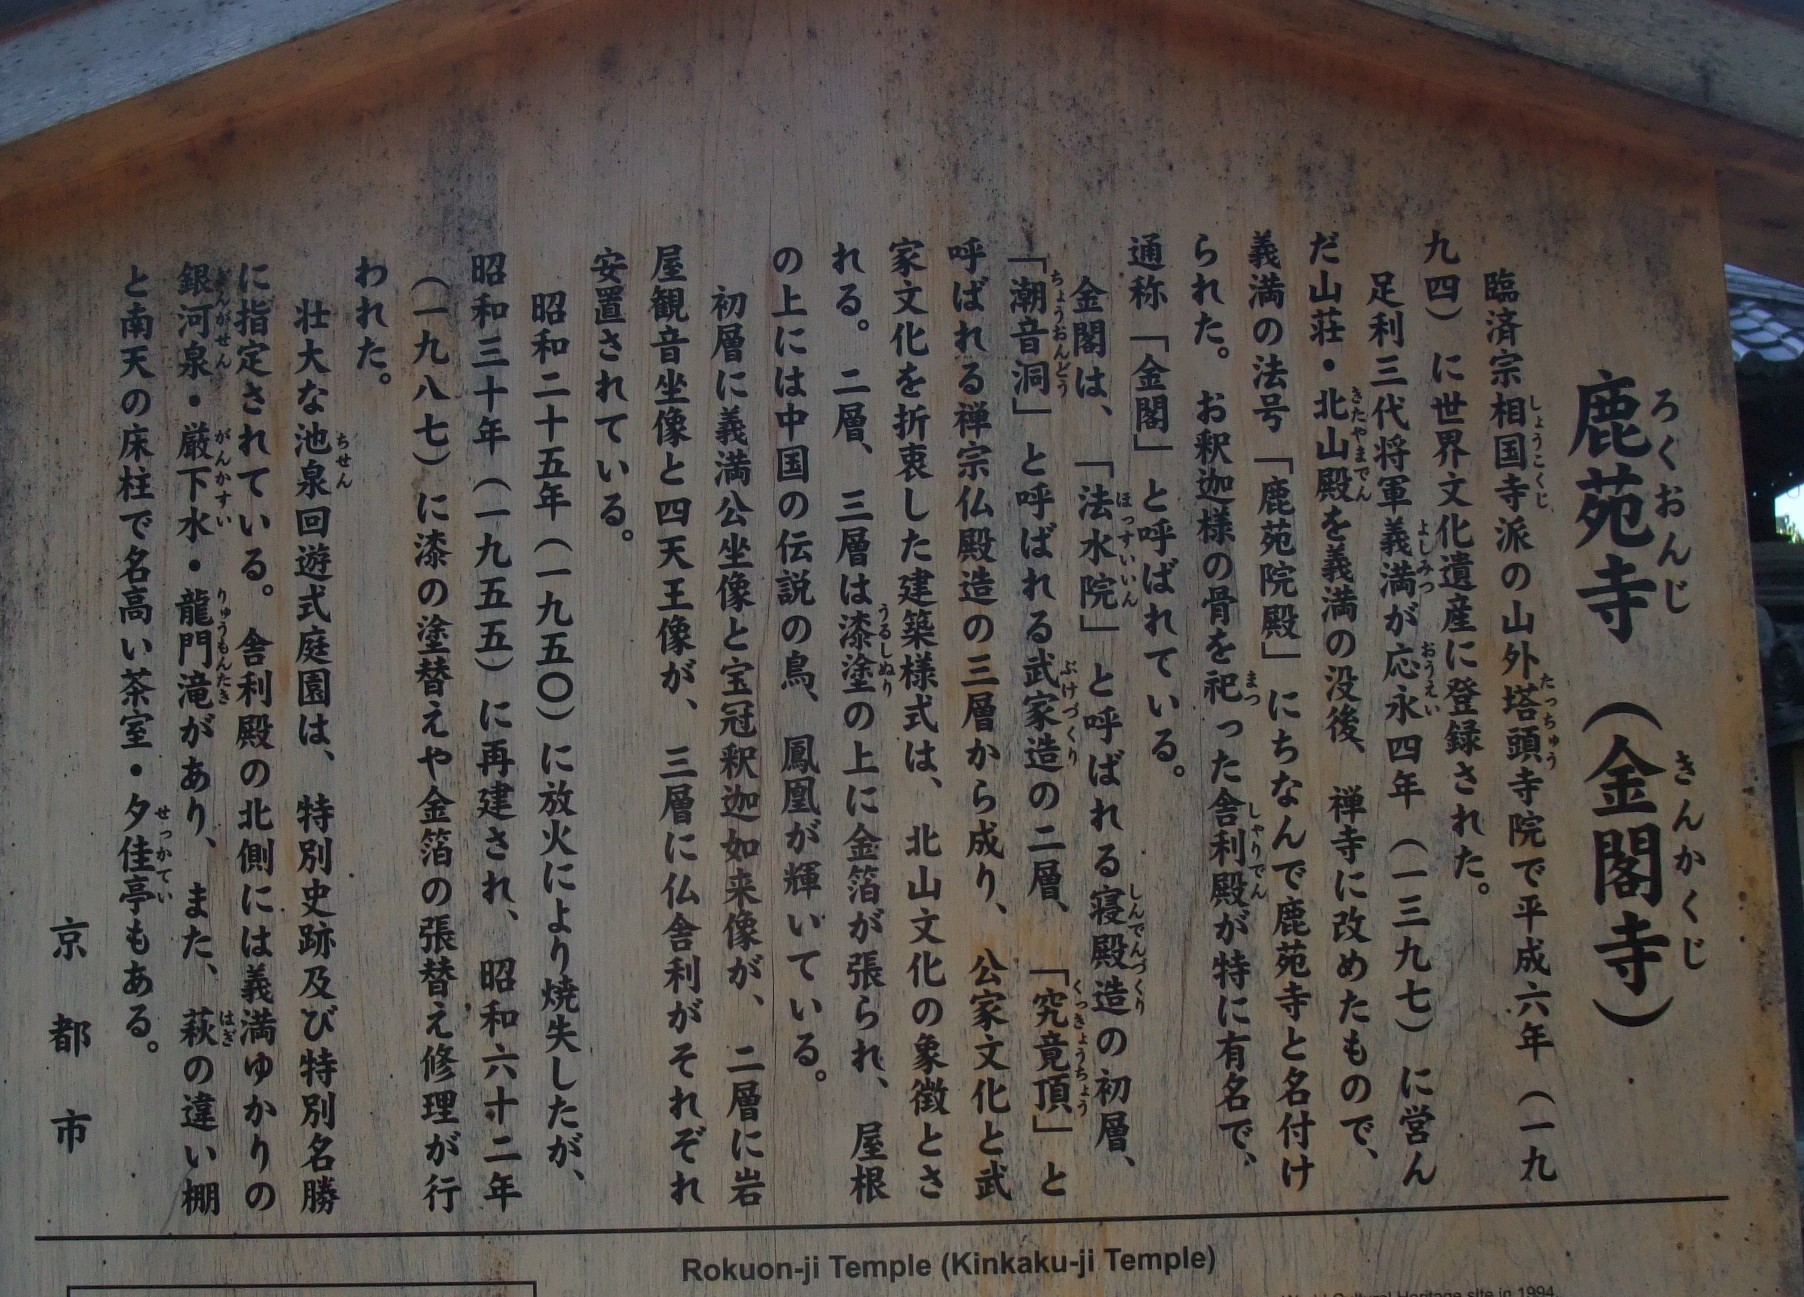 鹿苑寺（金閣寺）
ろくおんじ　きんかくじ
臨済宗相国寺派の山外塔頭寺院で平成六年（一九
しょうこくじ　たっちゅう
九四）に世界文化遺産に登録された。
足利三代将軍義満が応永四年（一三九七）に営ん
よしみつ　おうえい
だ山荘・北山殿を義満の没後、禅寺に改めたもので、
きたやまでん
義満の法号「鹿苑院殿」にちなんで鹿苑寺と名付け
られた。お釈迦様の骨を祀った舎利殿が特に有名で、
まつ　しゃりでん
通称「金閣」と呼ばれている。
金閣は、「法水院」と呼ばれる寝殿造の初層、
ほっすいいん　しんでんづくり
「潮音洞」と呼ばれる武家造の二層、「究竟頂」と
ちょうおんどう　ぶけづくり　くっきょうちょう
呼ばれる禅宗仏殿造の三層から成り、公家文化と武
家文化を折衷した建築様式は、北山文化の象徴とさ
れる。二層、三層は漆塗の上に金箔が張られ、屋根
うるしぬり
の上には中国の伝説の鳥、鳳凰が輝いている。
初層に義満公坐像と宝冠釈迦如来像が、二層に岩
屋観音坐像と四天王像が、三層に仏舎利がそれぞれ
安置されている。
昭和二十五年（一九五〇）に放火により焼失したが、
昭和三十年（一九五五）に再建され、昭和六十二年
（一九八七）に漆の塗替えや金箔の張替え修理が行
われた。
壮大な池泉回遊式庭園は、特別史跡及び特別名勝
ちせん
に指定されている。舎利殿の北側には義満ゆかりの
銀河泉・厳下水・龍門滝があり、また、萩の違い棚
ぎんがせん　がんかすい　りゅうもんたき　はぎ
と南天の床柱で名高い茶室・夕佳亭もある。
せっかてい
京都市
Rokuon-ji Temple (Kinkaku-ji Temple)
World Cultural Heritage site in 1994.